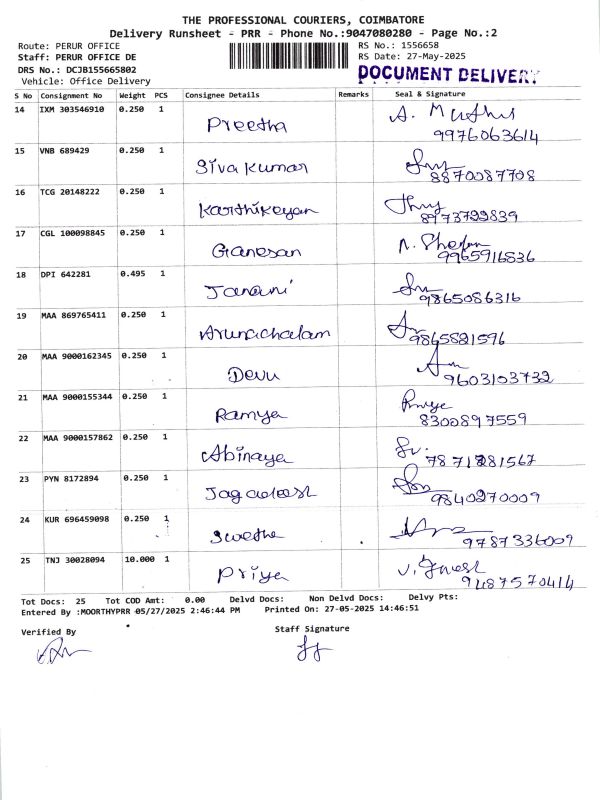 THE PROFESSIONAL COURIERS, COIMBATORE
Delivery Runsheet - PRR - Phone No.:9047080280 - Page No.:2
Route: PERUR OFFICE
Staff: PERUR OFFICE DE
DRS No.: DCJB155665802
Vehicle: Office Delivery
RS No.: 1556658
RS Date: 27-May-2025
DOCUMENT DELIVERY
S No Consignment No Weight PCS Consignee Details Remarks Seal & Signature
14 IXM 303546910 0.250 1 Preetha A. Muthu
9976063614
15 VNB 689429 0.250 1 Siva kumar
8870087708
16 TCG 20148222 0.250 1 Karthikeyan
8973799839
17 CGL 100098845 0.250 1 Ganesan
9965916836
18 DPI 642281 0.495 1 Janani
9865086316
19 MAA 869765411 0.250 1 Arunachalam
9865821596
20 MAA 9000162345 0.250 1 Devu
9603103732
21 MAA 9000155344 0.250 1 Ramya
8300897559
22 MAA 9000157862 0.250 1 Abinaya
7871281567
23 PYN 8172894 0.250 1 Jagadeesh
9840270009
24 KUR 696459098 0.250 1 Swetha
9787336009
25 TNJ 30028094 10.000 1 Priya
9487570414
Tot Docs: 25 Tot COD Amt: 0.00 Delvd Docs: Non Delvd Docs: Delvy Pts:
Entered By :MOORTHYPRR 05/27/2025 2:46:44 PM Printed On: 27-05-2025 14:46:51
Verified By Staff Signature